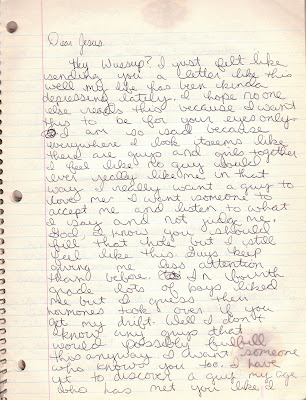 Dear Jesus,
Hey Wussup? I just felt like
sending you a letter like this
well my life has been kinda
depressing lately. I hope no one
else reads this because I want
this to be for your eyes only.
I am so sad because
everywhere I look it seems like
there are guys and girls together
I feel like no guy would
ever really like me in that
way. I really want a guy to
love me. I want someone to
accept me and listen to what
I say and not judge me.
God I know you should
fill that hole but I still
feel like this. Guys keep
giving me less attention
than before. In fourth
grade lots of boys liked
me but I guess their
hormones took over if you
get my drift. Well I don't
know any guys that
would possibly fulfill
this anyway. I want someone
who knows you too. I have
yet to discover a guy my age
who has met you like I